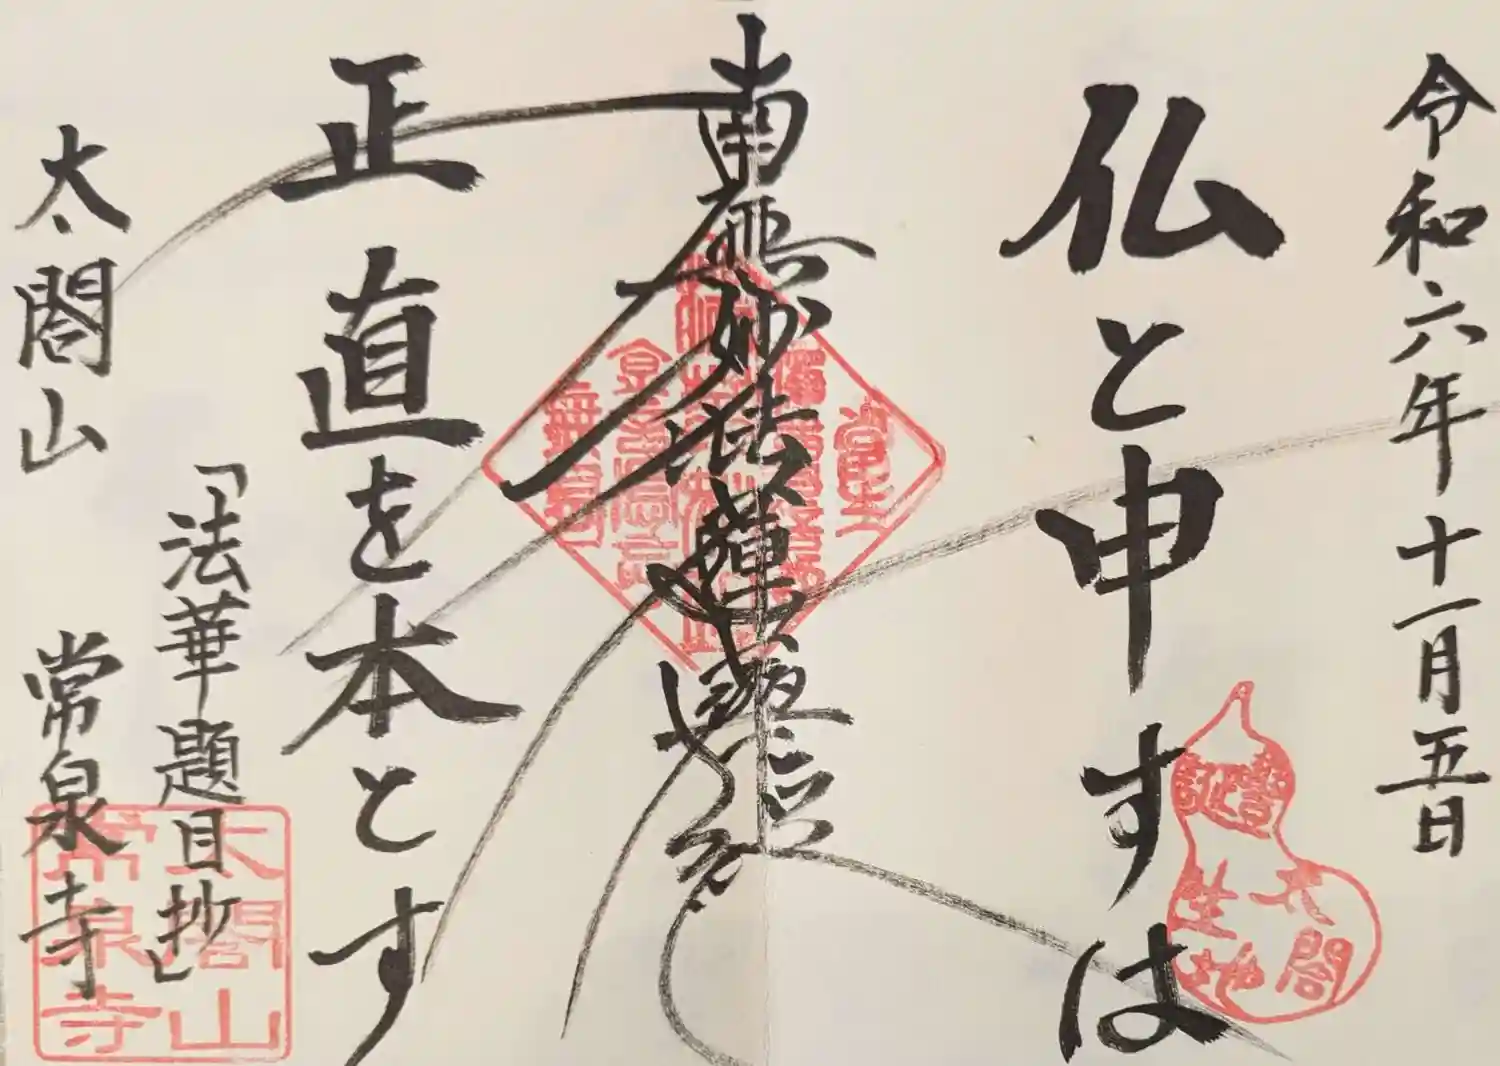 令和六年十一月五日
仏と申すは
豊公誕
太閤
生地
南無妙法蓮華経
正直を本とす
「法華題目抄」
太閤山　常泉寺
太閤山
常泉寺